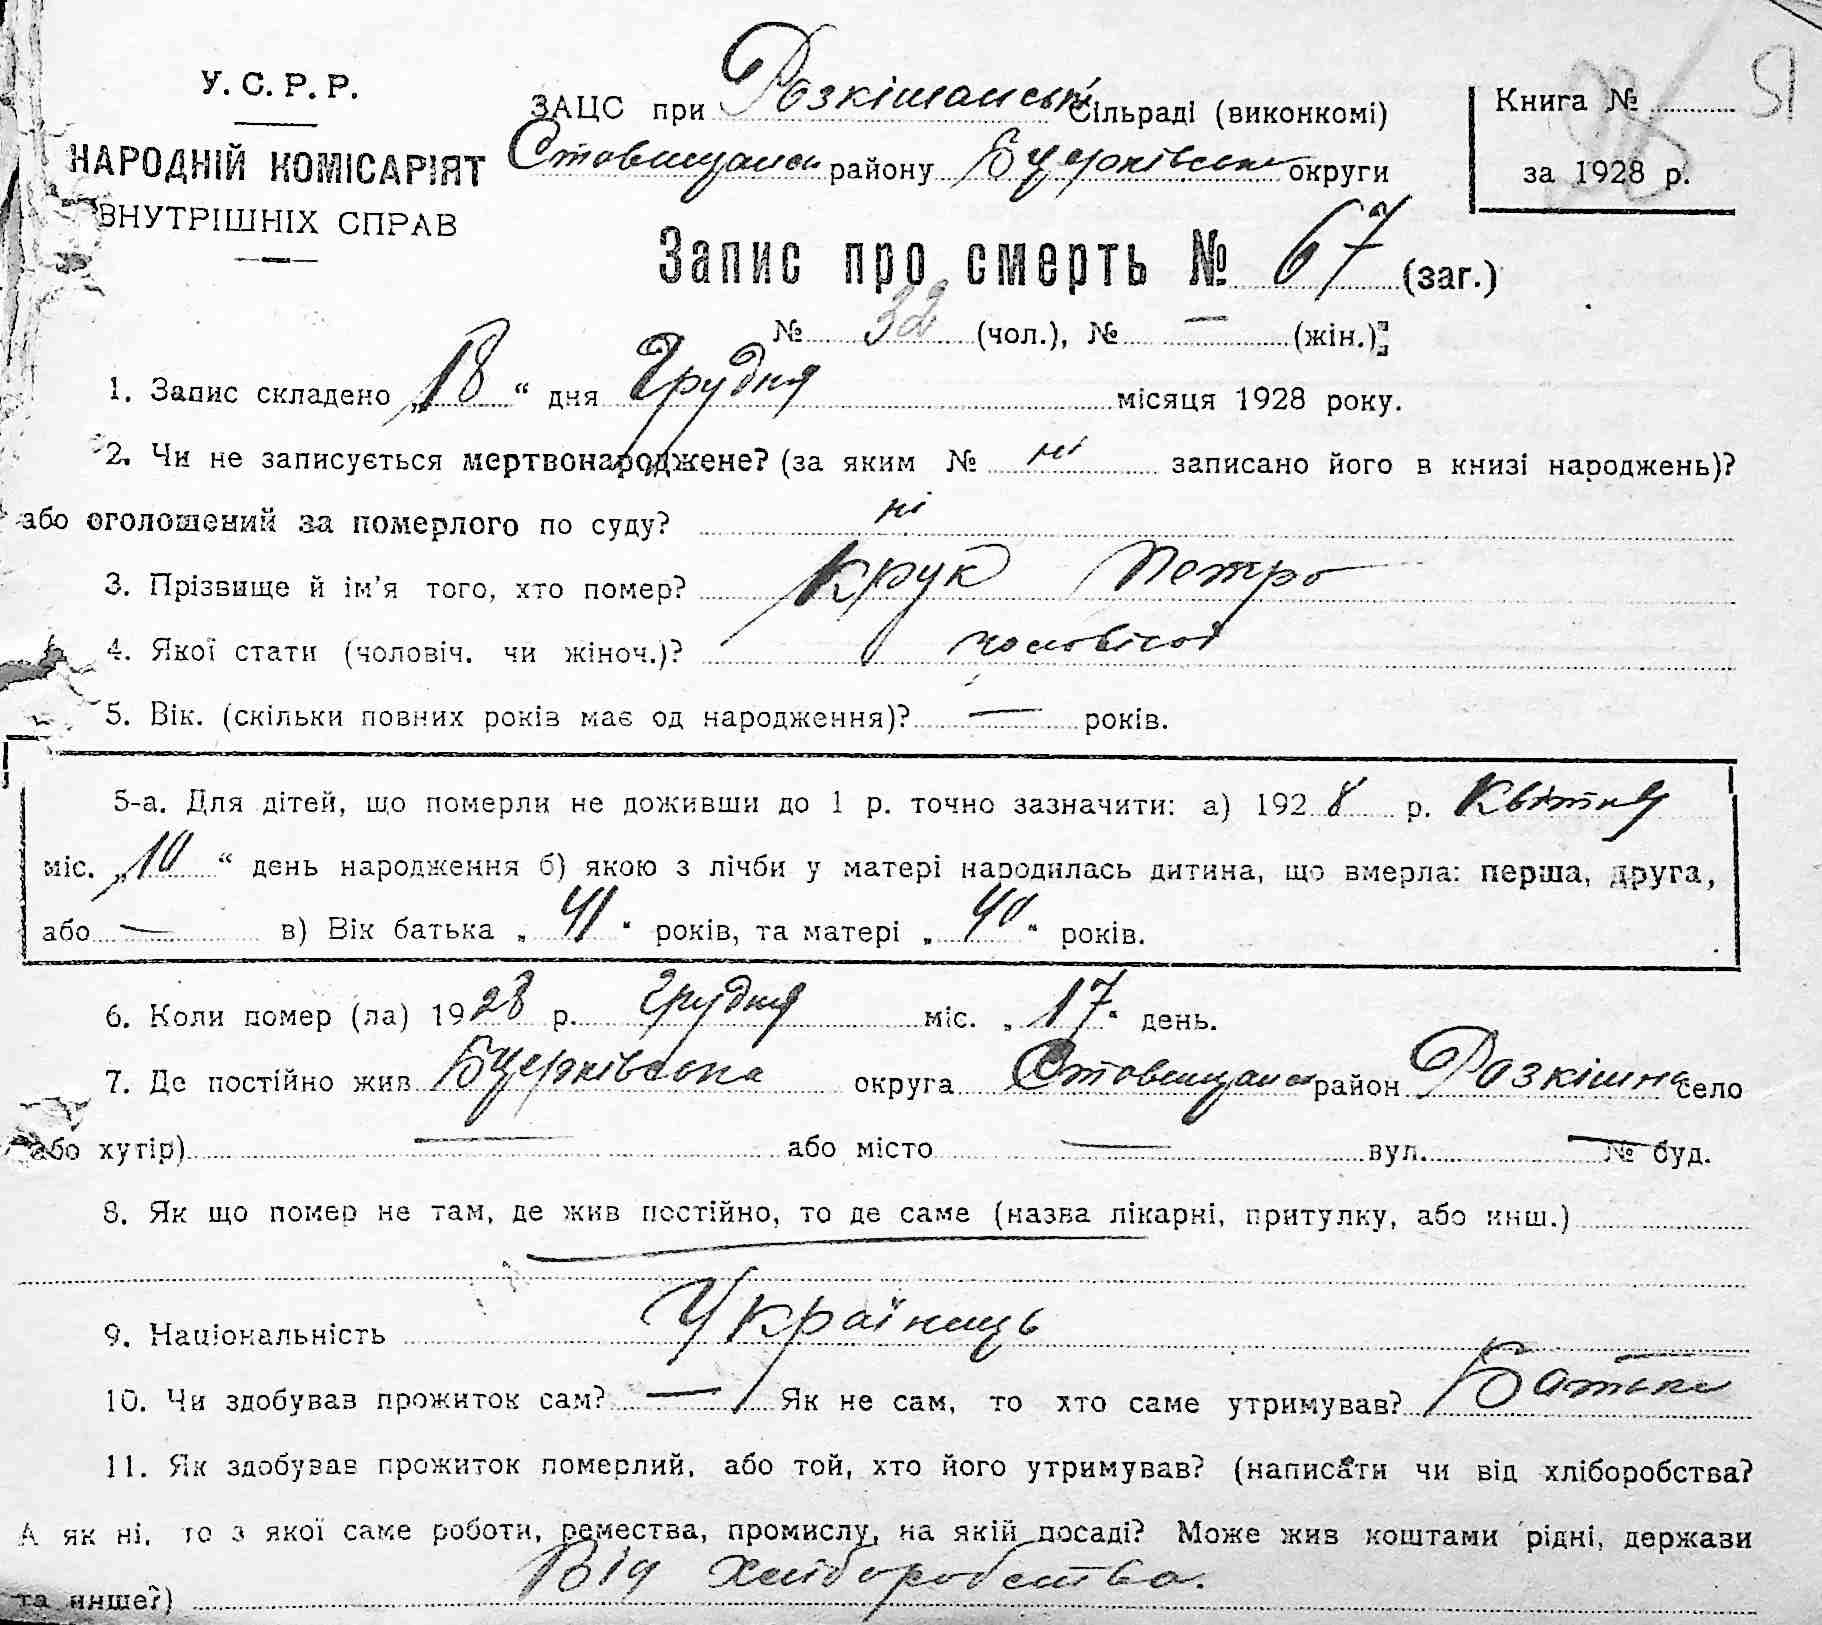 У. С. Р. Р.
НАРОДНІЙ КОМІСАРІЯТ
ВНУТРІШНІХ СПРАВ
ЗАЦС при Розкішанській Сільраді (виконкомі)
Ставищанськ району Бцерківськ округи
Книга №
за 1928 р.
Запис про смерть № 67 (заг.)
№ 32 (чол.), № — (жін.)
1. Запис складено „18“ дня Грудня місяця 1928 року.
2. Чи не записується мертвонароджене? (за яким № ні записано його в книзі народжень)?
або оголошений за померлого по суду? ні
3. Прізвище й ім’я того, хто помер? Крук Петро
4. Якої стати (чоловіч. чи жіноч.)? чоловічої
5. Вік. (скільки повних років має од народження)? — років.
5-а. Для дітей, що померли не доживши до 1 р. точно зазначити: а) 1928 р. Квітня
міс. „10“ день народження б) якою з лічби у матері народилась дитина, що вмерла: перша, друга,
або — в) Вік батька „41“ років, та матері „40“ років.
6. Коли помер (ла) 1928 р. Грудня міс. „17“ день.
7. Де постійно жив Бцерківська округа Ставищанськ район Розкішна село
або хутір) — або місто — вул. — № буд.
8. Як що помер не там, де жив постійно, то де саме (назва лікарні, притулку, або инш.)
9. Національність Українець
10. Чи здобував прожиток сам? — Як не сам, то хто саме утримував? Батьки
11. Як здобував прожиток померлий, або той, хто його утримував? (написати чи від хліборобства?
А як ні, то з якої саме роботи, ремества, промислу, на якій посаді? Може жив коштами рідні, держави
та инше?) Від хліборобства.